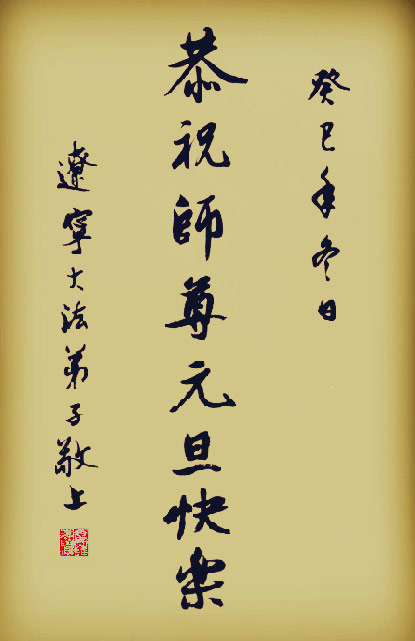 癸巳年冬日
恭祝師尊元旦快樂
遼寧大法弟子敬上